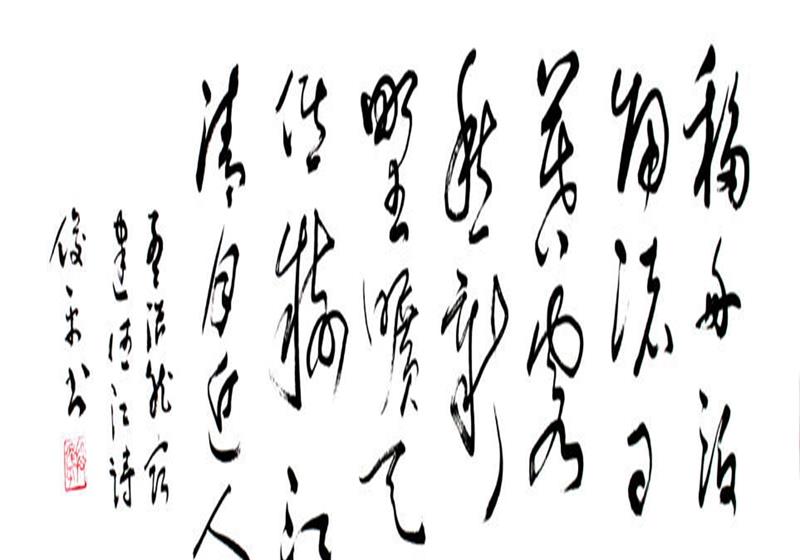 移舟泊
烟渚日
暮客
愁新
野曠天
低樹江
清月近人
孟浩然宿
建德江诗
俊平书